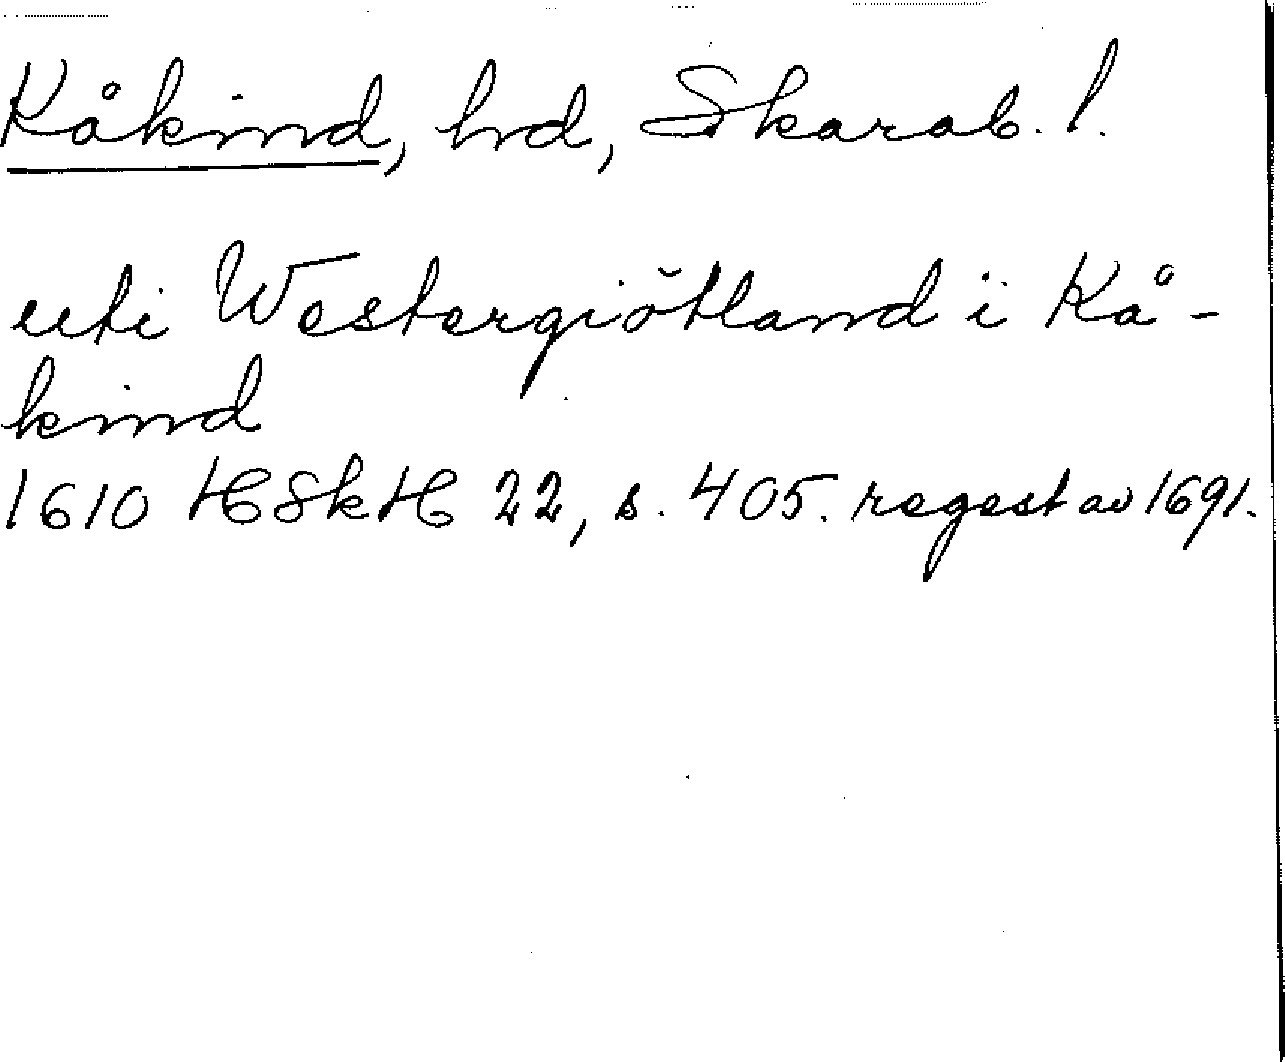 Kåkind, hd, Skarab. l.
uti Westergiötland i Kå-
kind
1610 HSkH 22, s. 405. regest av 1691.